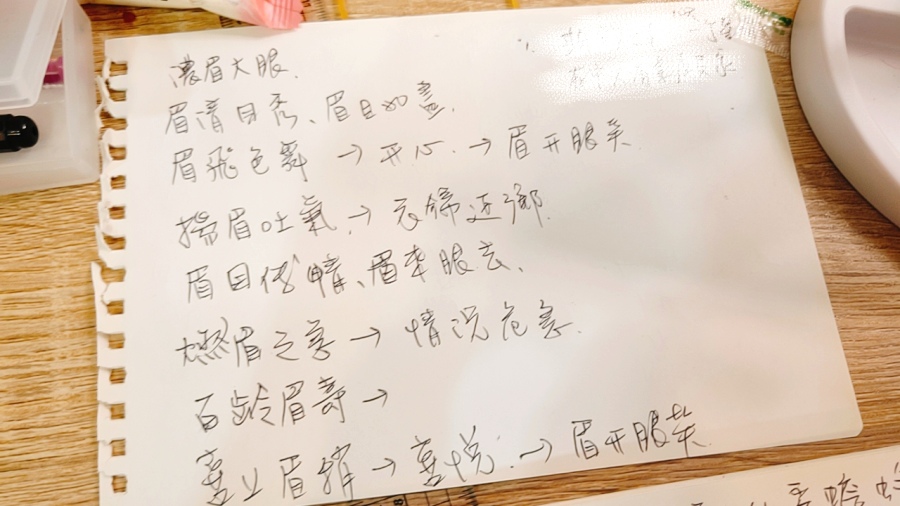 濃眉大眼.
眉清目秀、眉目如畫.
眉飛色舞 → 开心. → 眉开眼笑.
揚眉吐氣. → 衣錦还鄉.
眉目传情、眉来眼去、
燃眉之急 → 情況危急.
百龄眉寿 →
喜上眉梢 → 喜悦. → 眉开眼笑.